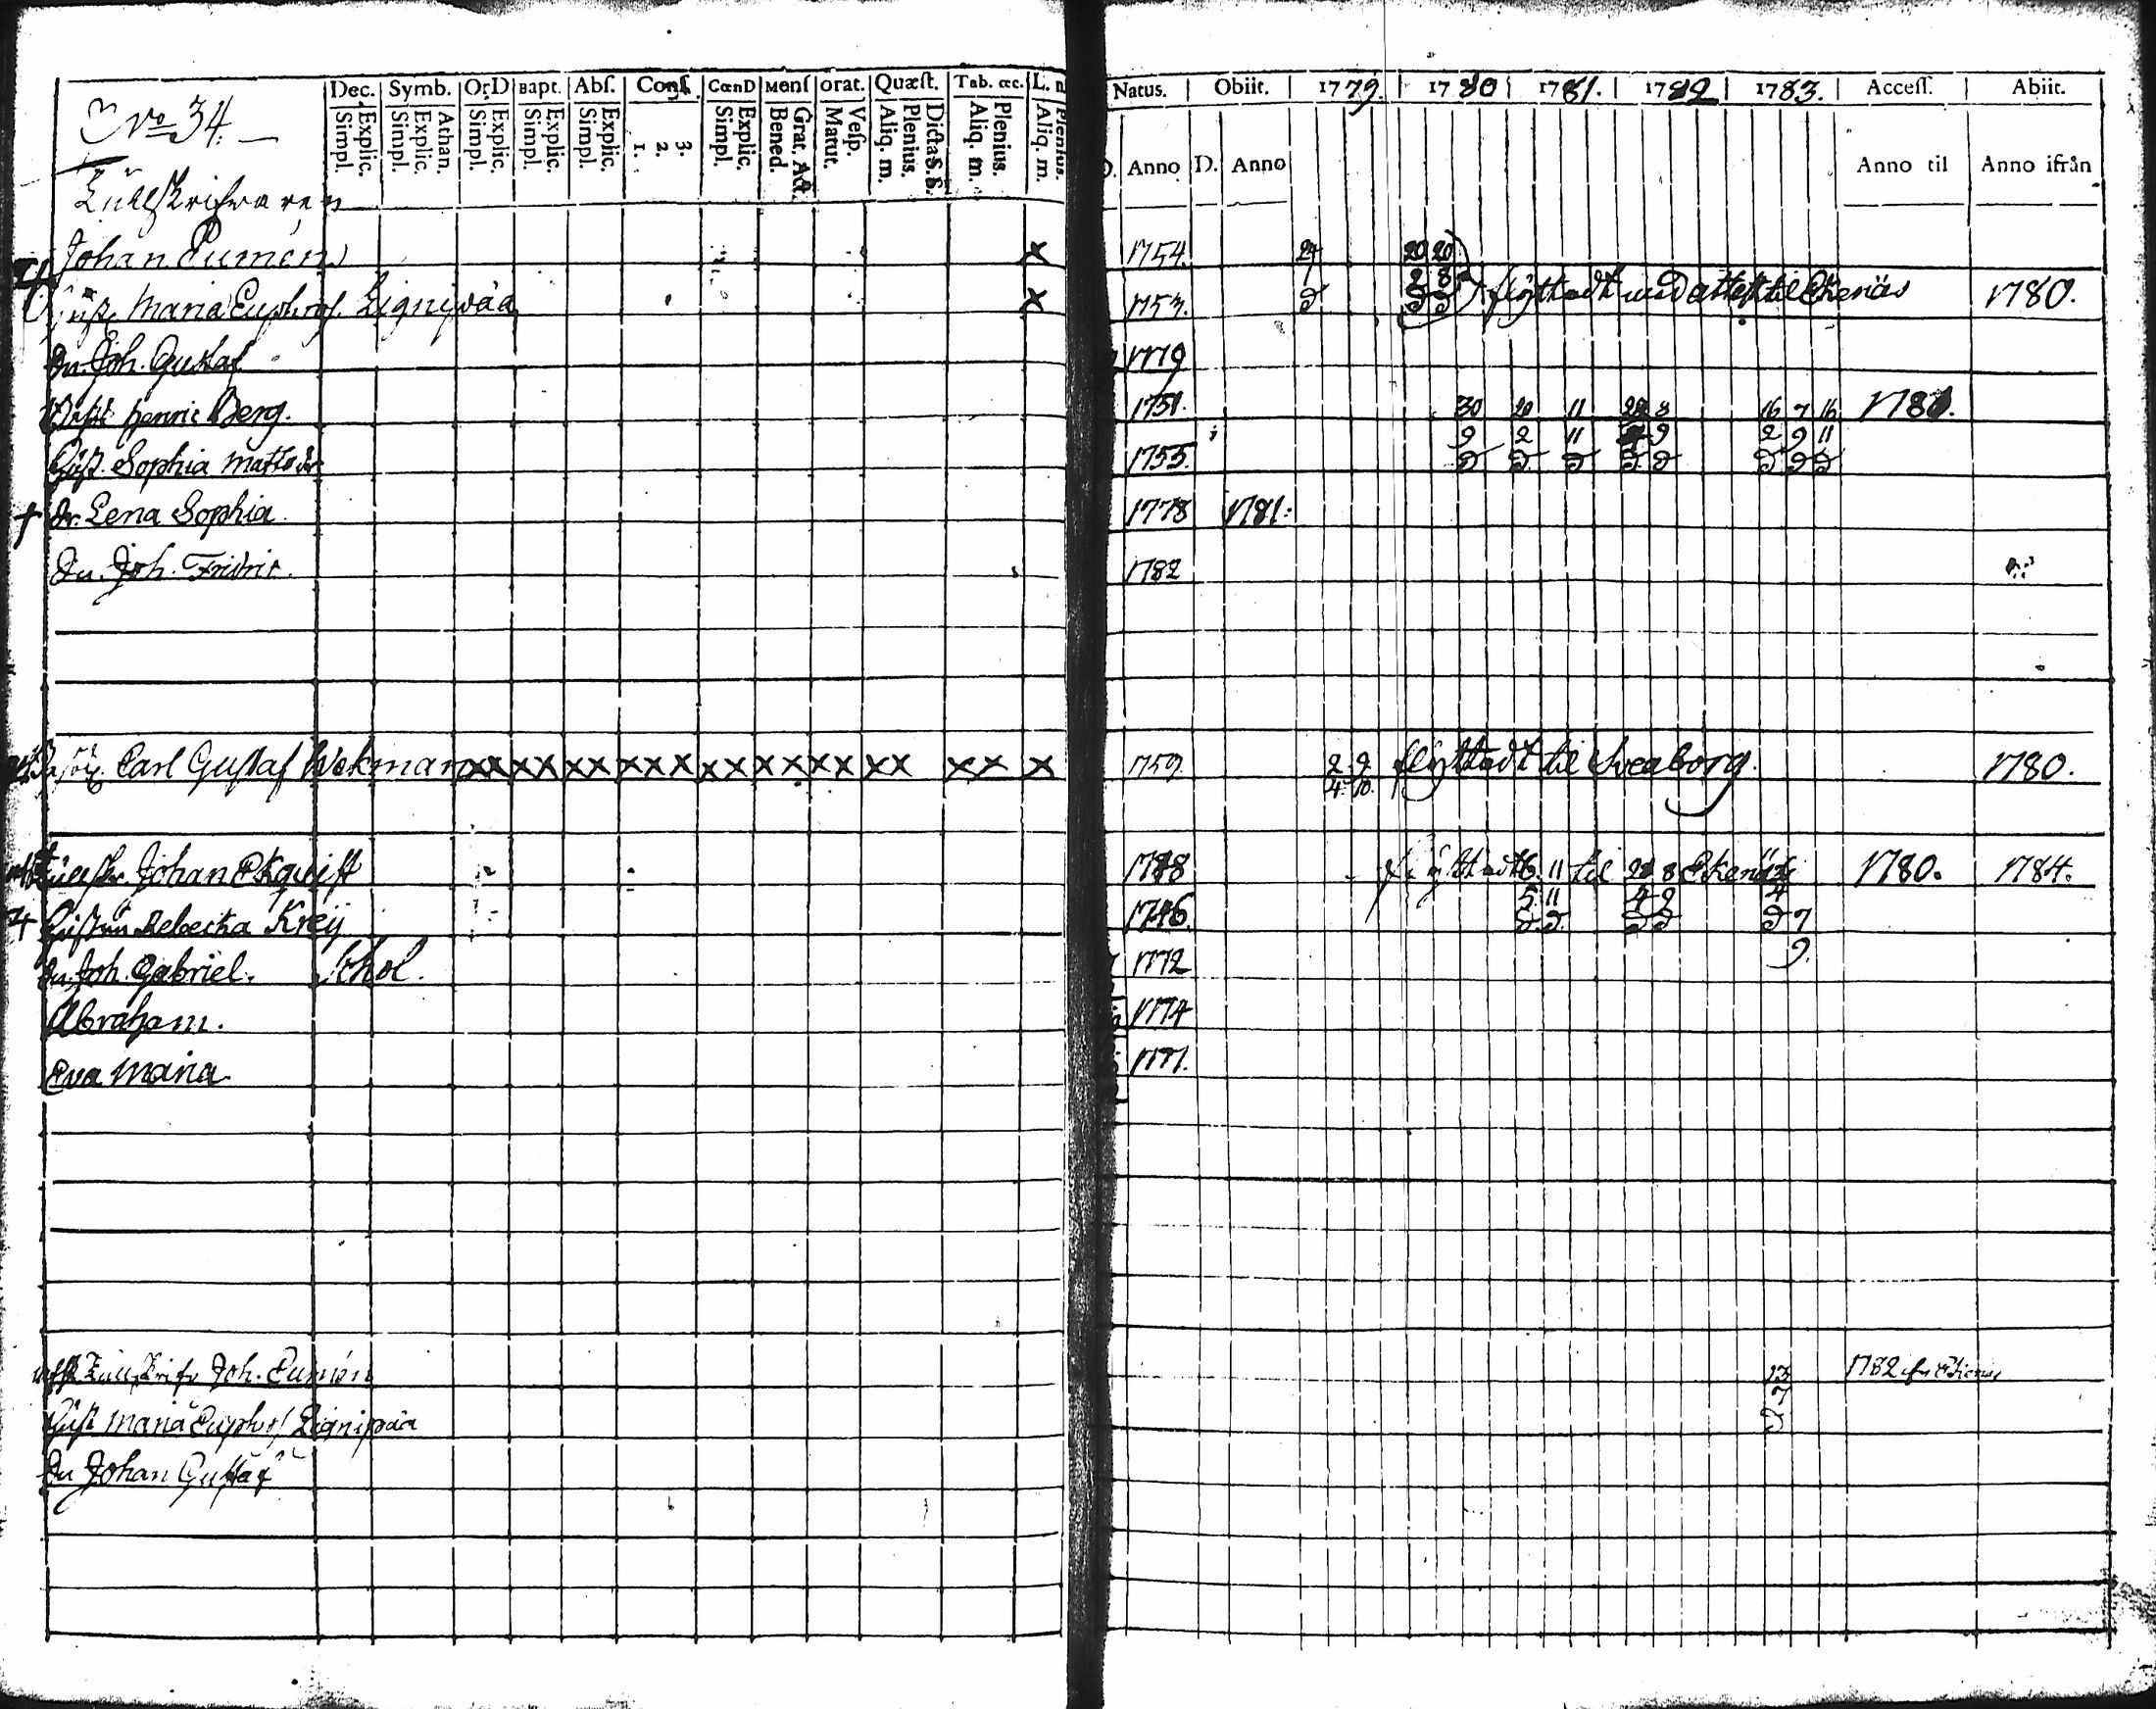 No 34.
Dec. Symb. Or.D Bapt. Abs. Conf. CœnD Mens Orat. Quæst. Tab. œc. L.
Simpl. Explic. Simpl. Explic. Athan. Simpl. Explic. Simpl. Explic. Simpl. Explic. 1. 2. 3. Simpl. Explic. Bened. Grat. Act. Matut. Vesp. Aliq. m. Plenius. Dicta S.S. Aliq. m. Plenius. Aliq. m. Plenius.
Natus. Obiit. 1779. 1780 1781. 1782 1783. Access. Abiit.
D. Anno D. Anno Anno til Anno ifrån
Tullskrifvaren
Johan Cumén x 1754. 24 20 20
Hust. Maria Euphros. Lignipæa x 1753. flyttadt med attest til Ekenäs 1780.
Dr. Joh. Gustaf 1779
Henric Berg. 1751. 30 20 11 22 8 16 7 16 1780.
9 2 11 4 9 2 9 11
Hust. Sophia Matts dr 1755.
† Dr. Lena Sophia 1778 1781:
Dn. Joh. Fridric. 1782
Carl Gustaf Wekman xx xx xx xxx xx xx xx xx xx x 1759 2. 9 flyttadt til Sveaborg. 1780.
4. 10.
Tullskr. Johan Ekqvist 1748 flyttadt 6. 11 til 22 8 Ekenäs 1780. 1784.
Hustrun Rebecka Kreij 1746. 5 11 4 9 4
Dn. Joh. Gabriel. Schol. 1772 9.
Abraham. 1774
Eva Maria 1777.
Tullskrifv Joh. Cumén 13 1782 fr Ekenäs
Hust Maria Euphros Lignipæa
Dn Johan Gustaf